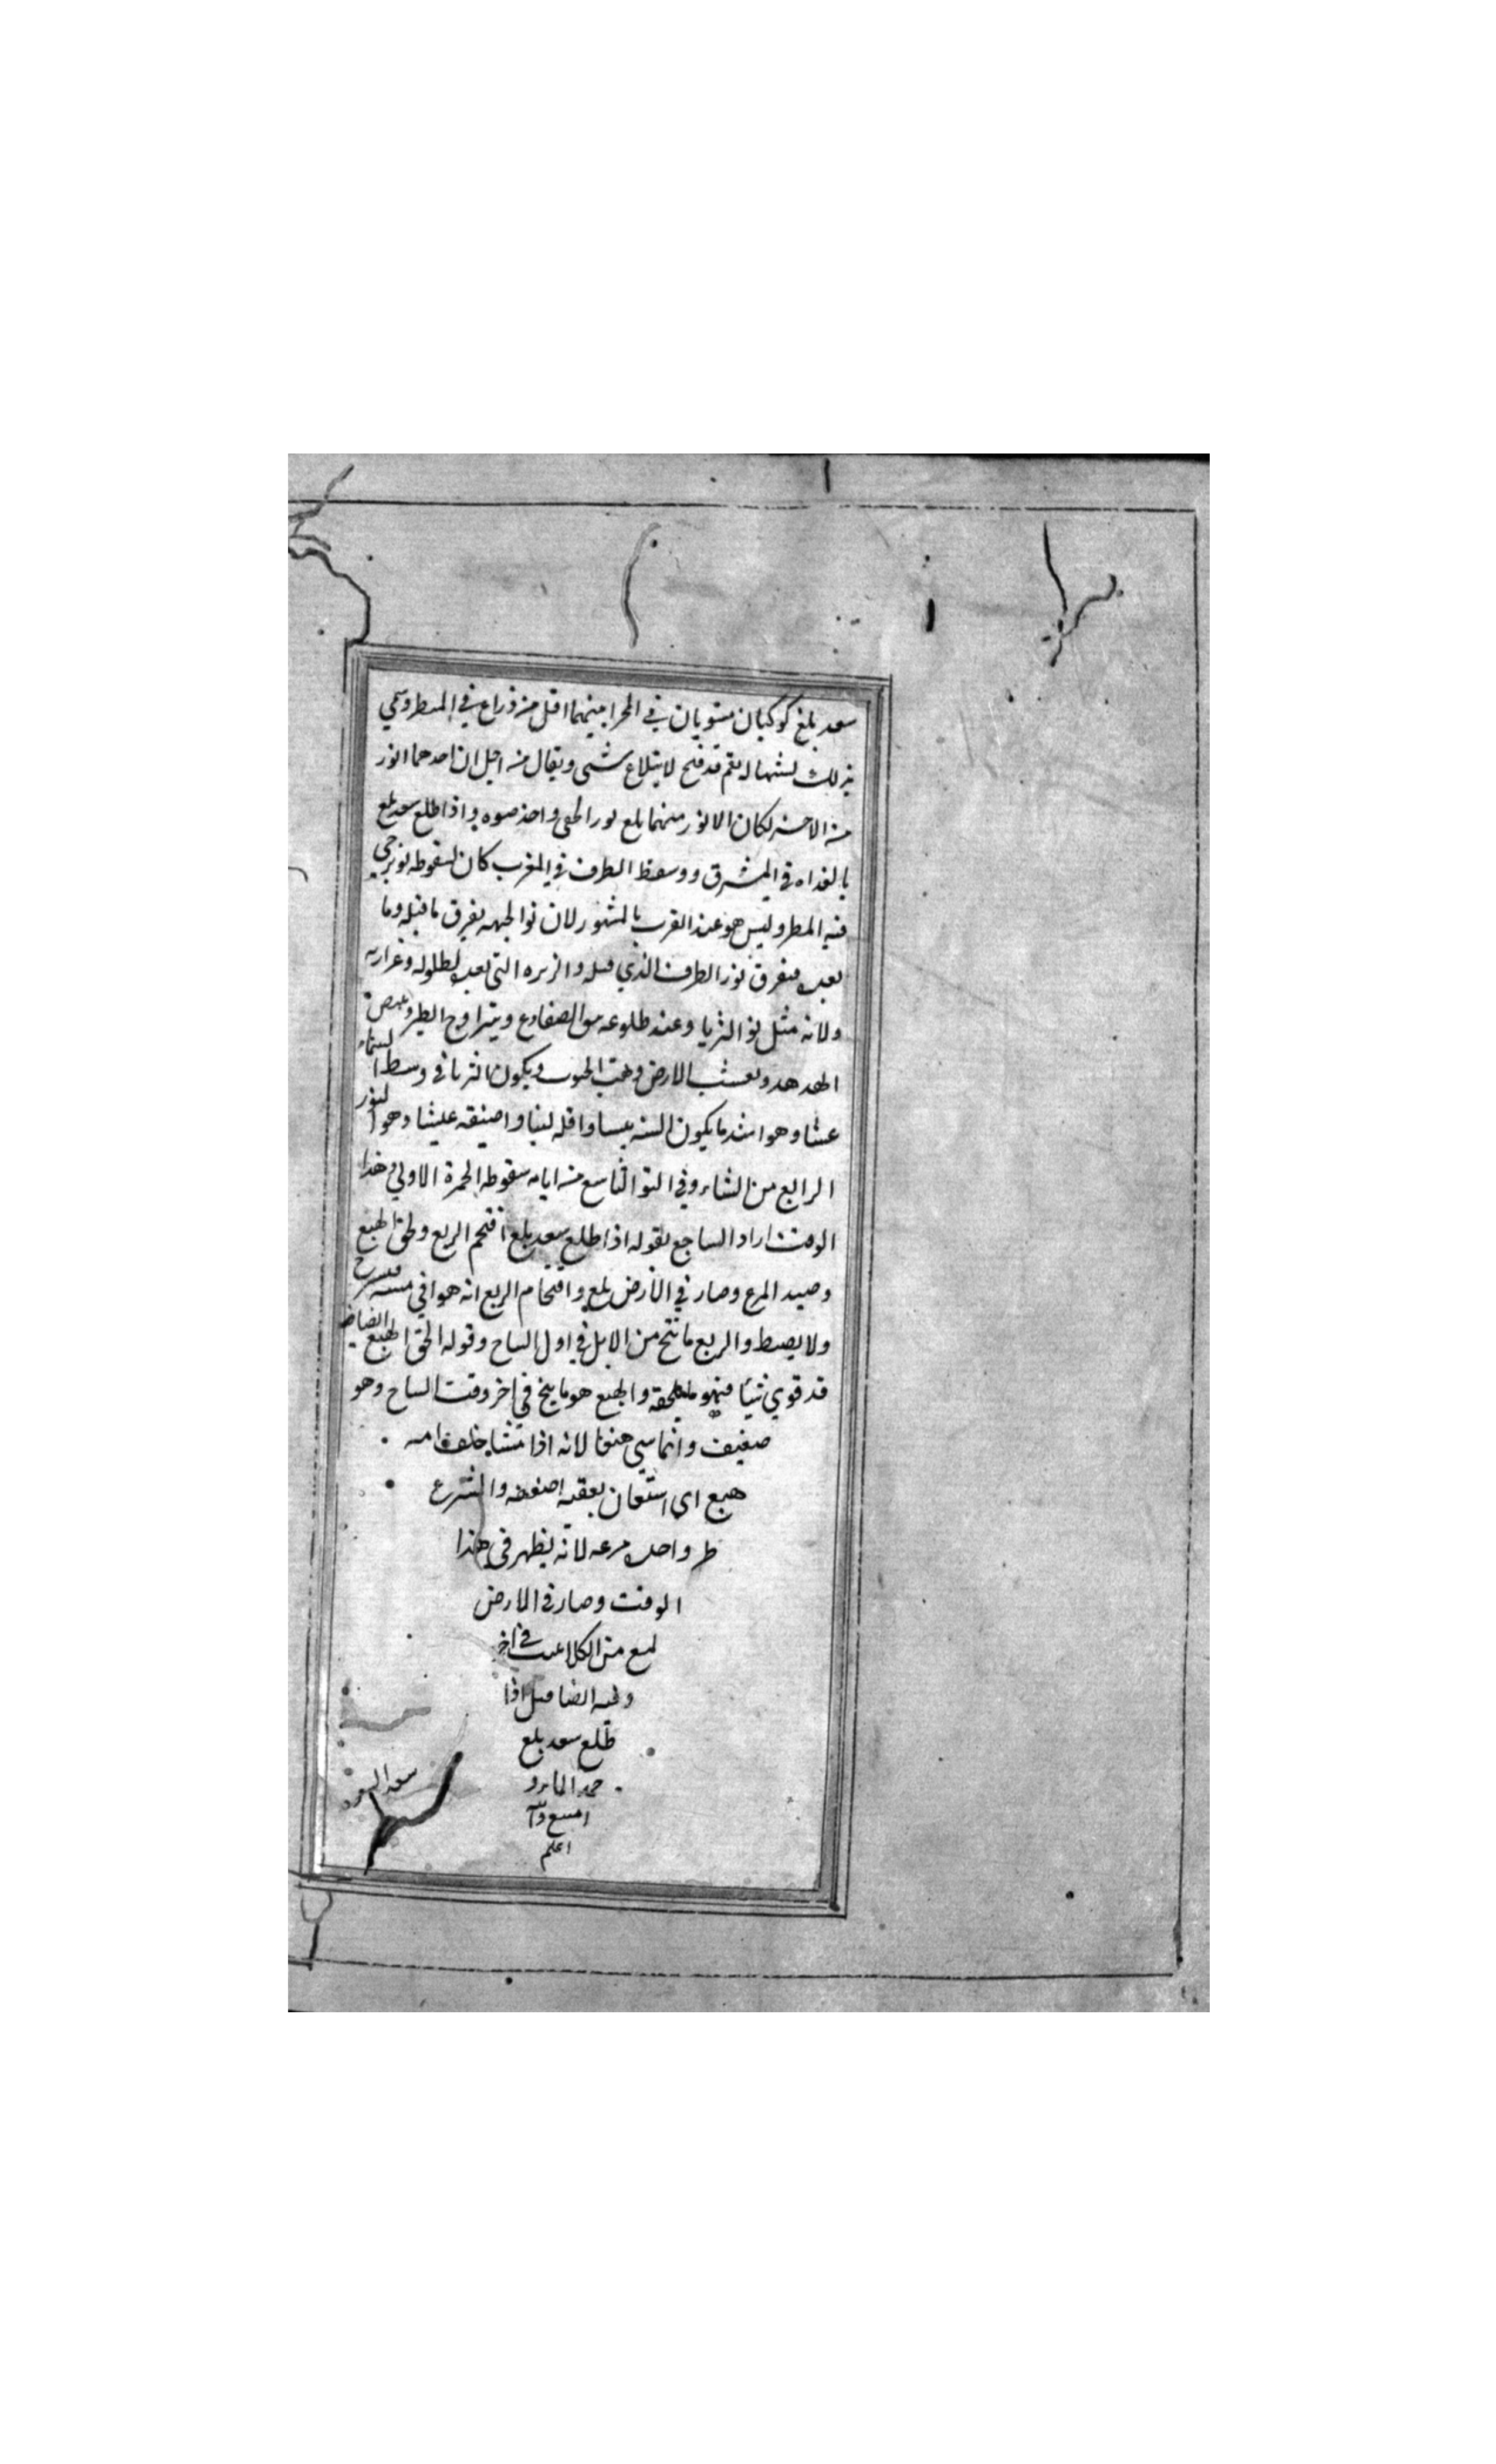 سعد بلع كوكبان مستويان في المجرا بينهما اقل من ذراع في المنظر وسمي
بذلك لشبهها له بفم قد فتح لابتلاع شي ويقال من اجل ان احدهما انور
من الاخر لكان الانور منهما بلع نور الخفي واخذ ضوه واذا طلع سعد بلع
بالغداه في المشرق وسقط الطرف في المغرب كان لسقوطه نو يرجي
فيه المطر وليس هو عند العرب بالمشهور لان نو الجبهه يغرق ما قبله وما
بعد فيغرق نور الطرف الذي قبله والزبره التي بعد لطلوله وغزارته
ولانه مثل نو الثريا وعند طلوعه الضفادع ويتراوح الطير
الهدهد وتعشب الارض وتهب الجنوب ويكون الثريا في وسط السماء
عشا وهو اشد ما يكون السنه يبسا واقله لبنا واضيقه عيشا وهو النور
الرابع من الشتاء وفي النو التاسع من ايامه سقوط الجمرة الاولي وهذا
الوقت اراد الساجع بقوله اذا طلع سعد بلع اقتحم الربع ولحق الهبع
وصيد المرع وصار في الارض لمع واقتحام الربع انه هو في
ولا يضبط والربع ما نتج من الابل في اول النتاج وقوله لحق الهبع
قد قوي شيا فهو ما يلحقه والهبع هو ما ينتج في اخر وقت النتاج وهو
ضعيف وانما سمي هبعا لانه اذا مشا خلف امه
هبع اي استعان بعنقه لضعفه والشرع
طير واحده مرعه لانه يظهر في هذا
الوقت وصار في الارض
لمع من الكلا في اخر
اذا
طلع سعد بلع
اعلم
سعد السعود